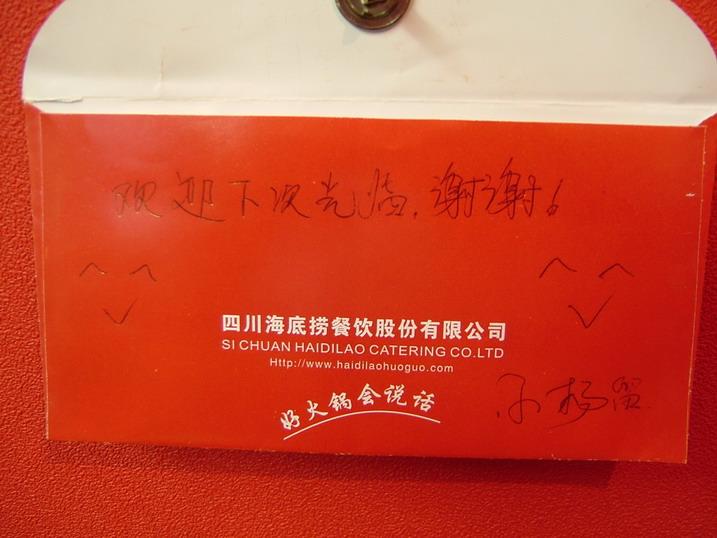 欢迎下次光临,谢谢!
四川海底捞餐饮股份有限公司
SI CHUAN HAIDILAO CATERING CO.LTD
Http://www.haidilaohuoguo.com
好火锅会说话
小杨留